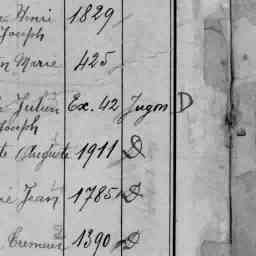 Henri 1829
Joseph
n Marie 425
Julien Ex. 42 Jugon D
Joseph
te Auguste 1911 D
ie Jean 1785 D
1390 D